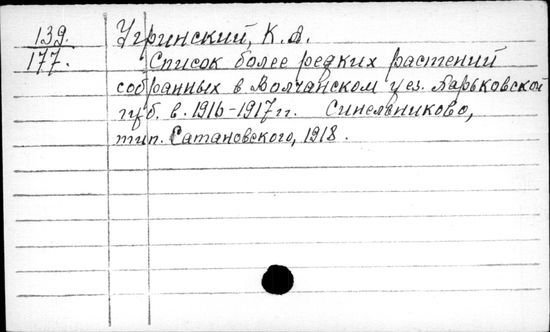 139.
177.
Угринский, К. А.
Список более редких растений
собранных в Волчанском уез. Харьковской
губ. в. 1916-1917 гг. Синельниково,
тип. Сатановского, 1918.